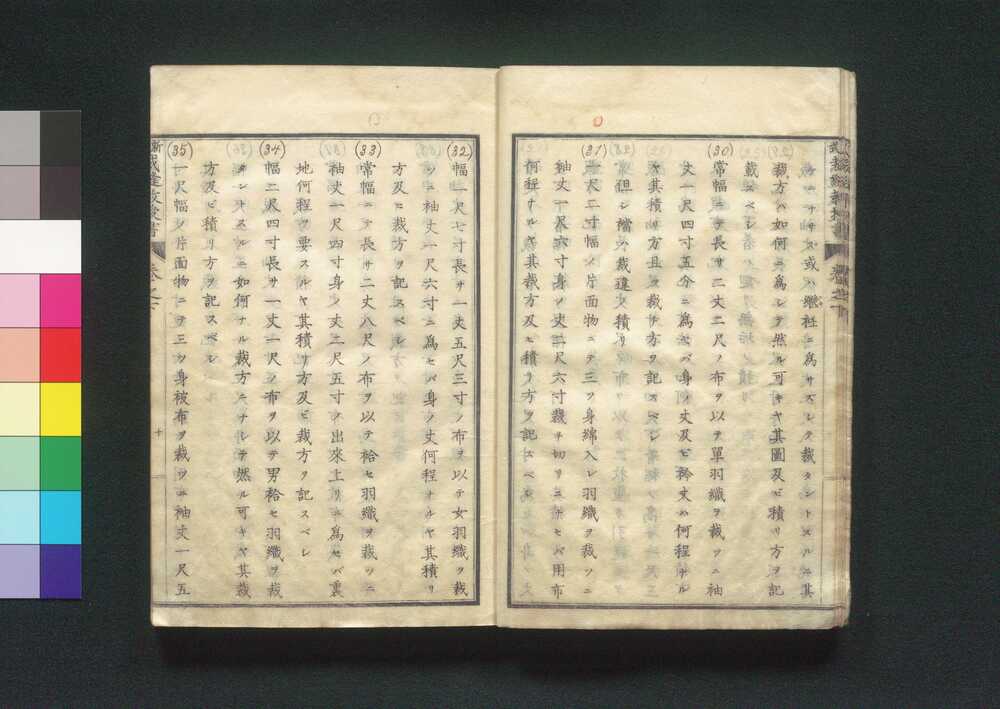 サス或ハ繼衽ニ爲サズシテ裁タントスルニ其
裁方ハ如何ニ爲シテ然ル可キヤ其圖及ビ積リ方ヲ記
載スベシ
(30) 常幅ニテ長サ二丈二尺ノ布ヲ以テ單羽織ヲ裁ツニ袖
丈一尺四寸五分ニ爲セバ身ノ丈及ビ衿丈ハ何程ナル
ヤ其積リ方且ツ裁チ方ヲ記スベシ
但シ襠ハ裁違ヘ積リ
(31) 一尺二寸幅ノ片面物ニテ三ツ身綿入レ羽織ヲ裁ツニ
袖丈一尺六寸身ノ丈二尺六寸裁チ切リニ爲セバ用布
何程ナルヤ其裁方及ビ積リ方ヲ記スベシ
(32) 幅一尺七寸長サ一丈五尺三寸ノ布ヲ以テ女羽織ヲ裁
ツニ袖丈一尺六寸ニ爲セバ身ノ丈何程ナルヤ其積リ
方及ビ裁方ヲ記スベシ
(33) 常幅ニテ長サ二丈八尺ノ布ヲ以テ袷セ羽織ヲ裁ツニ
袖丈一尺四寸身ノ丈二尺五寸ノ出來上リニ爲セバ裏
地何程ヲ要スルヤ其積リ方及ビ裁方ヲ記スベシ
(34) 幅二尺四寸長サ一丈一尺ノ布ヲ以テ男袷セ羽織ヲ裁
タントスルニ如何ナル裁方ニナシテ然ル可キヤ其裁
方及ビ積リ方ヲ記スベシ
(35) 一尺幅ノ片面物ニテ三ツ身被布ヲ裁ツニ袖丈一尺五
裁縫教授書
十